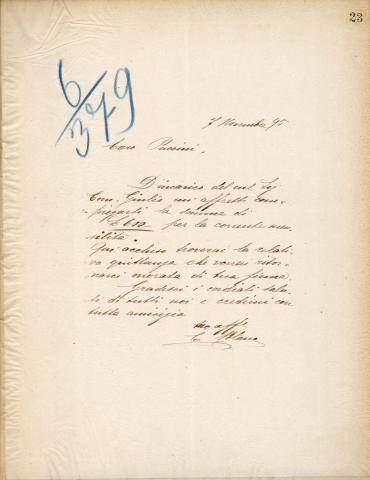 23
6/379
7 Novembre 95
Caro Puccini,
D'incarico del sul Sig
Com. Giulio mi affretto com-
-piegarti la somma di
£ 600 per la corrente men-
silità.
Qui accluso troverai la relati-
va quittanza che vorrai ritor-
narci munita di tua firma.
Gradisci i cordiali salu-
ti di tutti noi e credimi con
tutta amicizia
tuo aff.